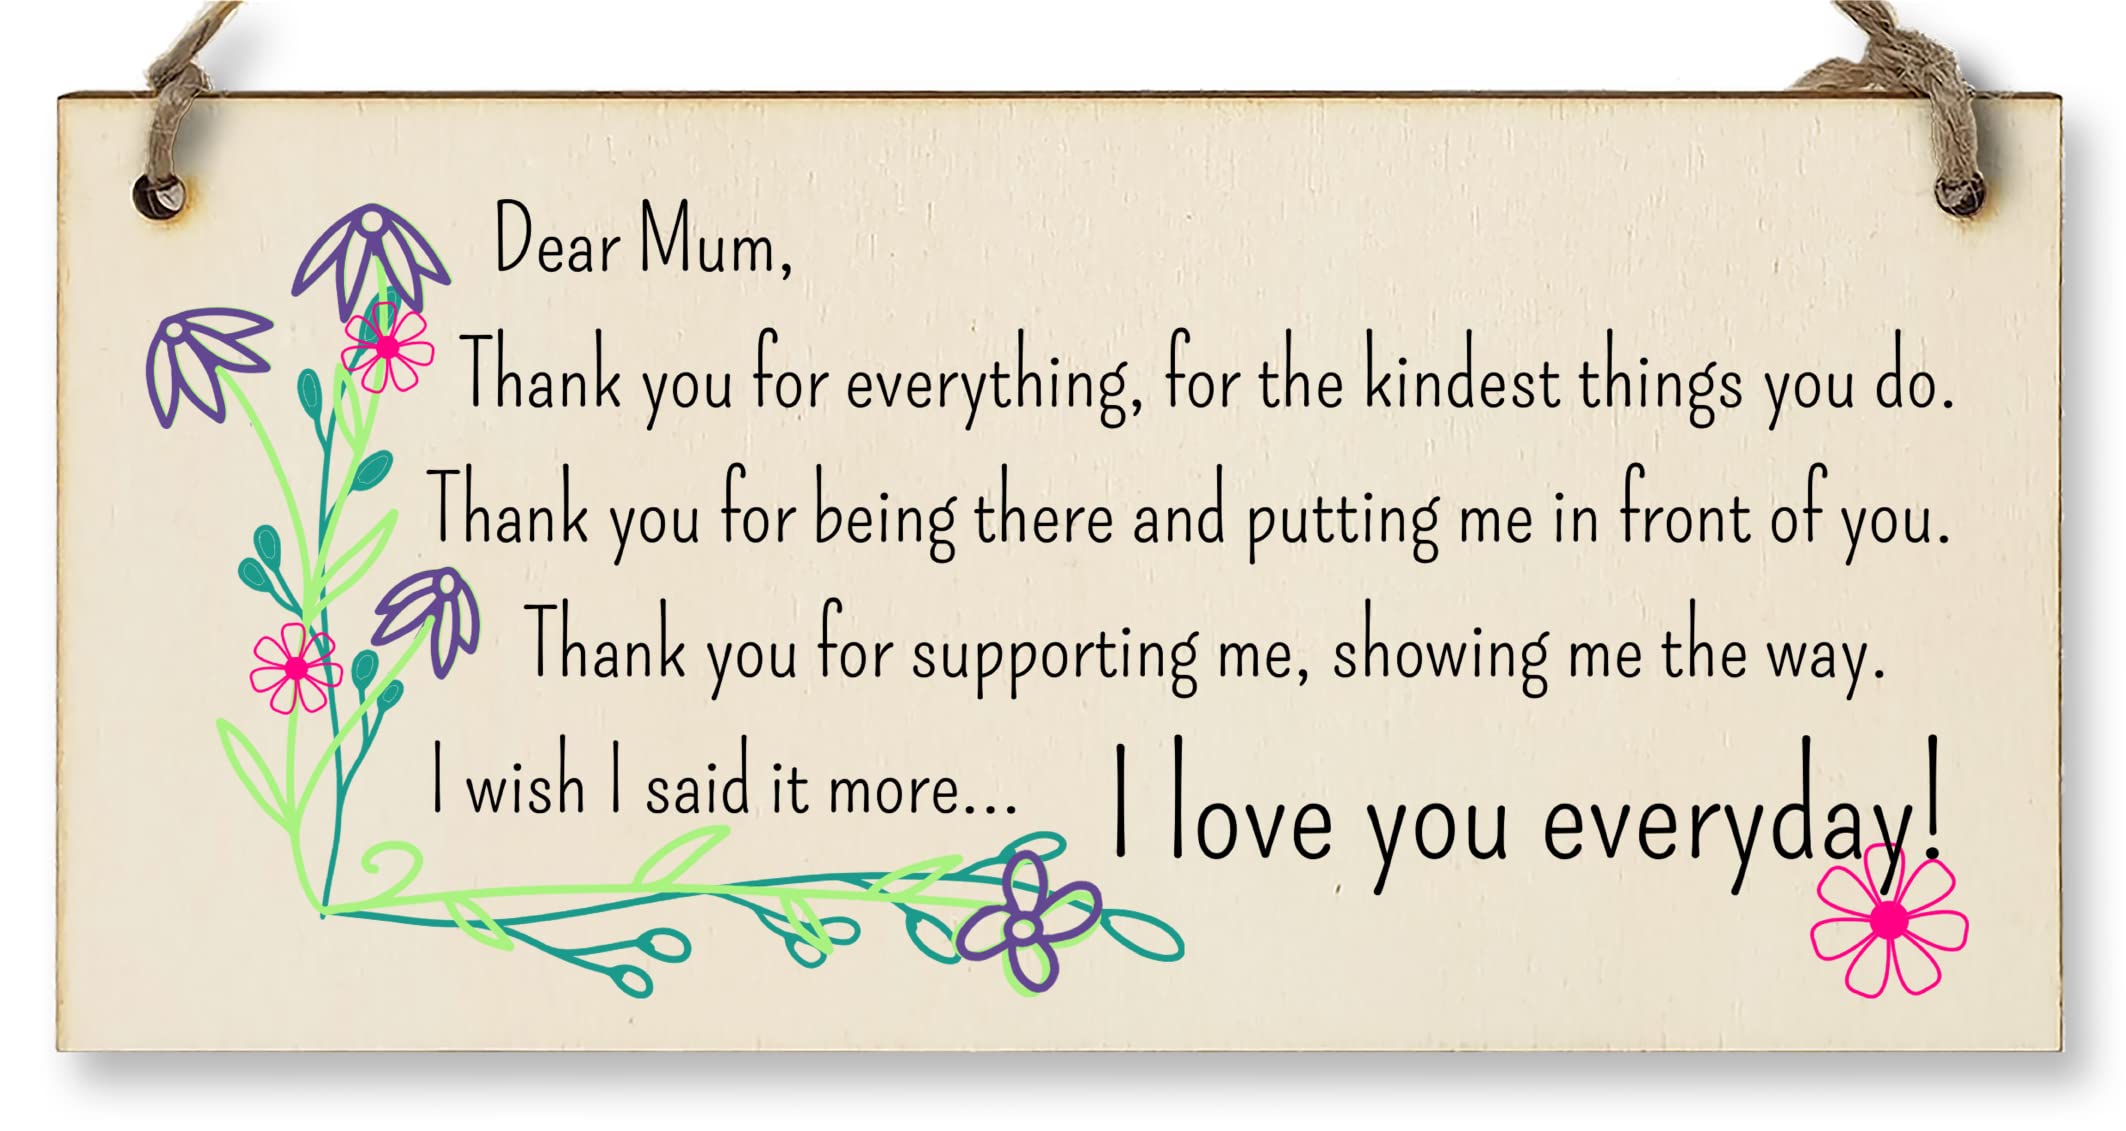 Dear Mum,
Thank you for everything, for the kindest things you do.
Thank you for being there and putting me in front of you.
Thank you for supporting me, showing me the way.
I wish I said it more... I love you everyday!